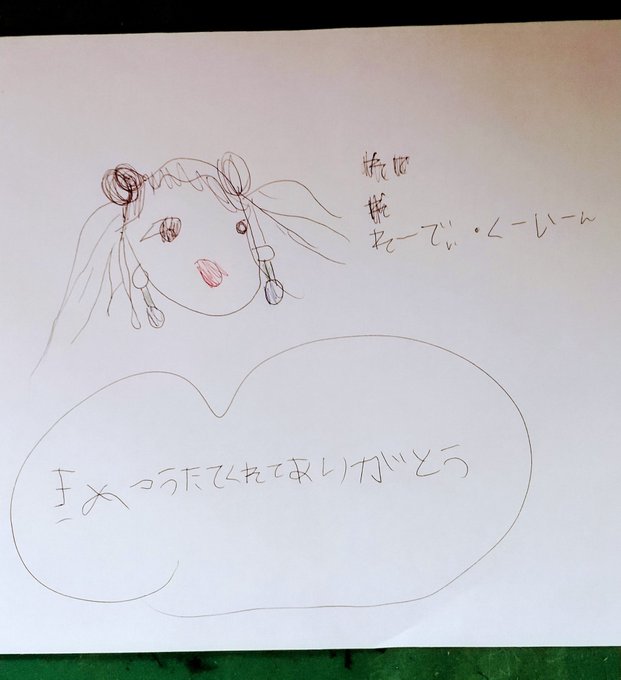 れーでぃ・くーいーん
きめつうたてくれてありがとう